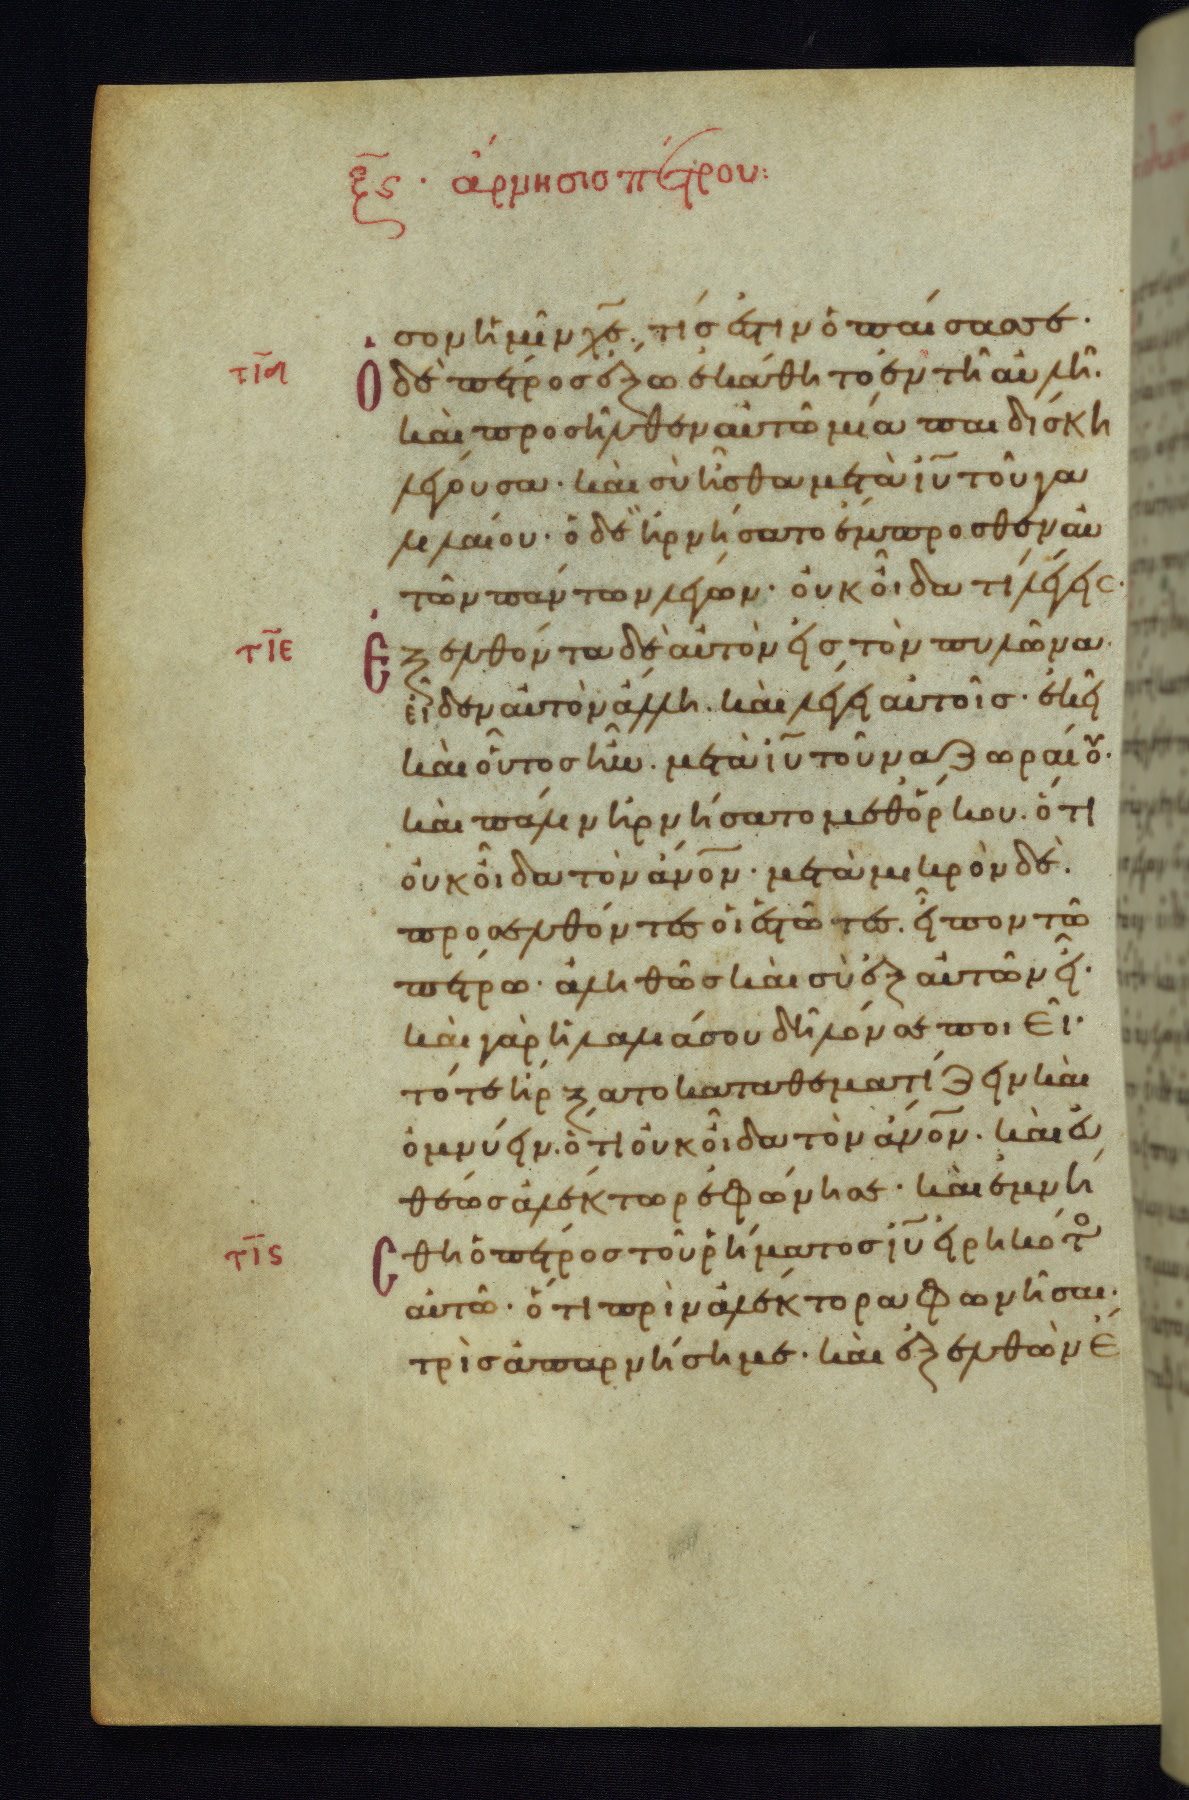 ξς · ἄρνησις πέτρου:
σον ἡμῖν χε̅. τίς ἐστιν ὁ παίσας σε·
τιδ Ὁ δὲ πέτρος ἔξω ἐκάθητο ἐν τῆ αὐλῆ.
καὶ προσῆλθεν αὐτῶ μία παιδίσκη
λέγουσα· καὶ σὺ ἦσθα μετὰ ιυ̅ τοῦ γα
λιλαίου· ὁ δὲ ἠρνήσατο ἔμπροσθεν αὐ
τῶν πάντων λέγων· οὐκ οἶδα τί λέγεις·
τιε Ἐξελθόντα δὲ αὐτὸν εἰς τὸν πυλῶνα·
εἶδεν αὐτὸν ἄλλη. καὶ λέγει αὐτοῖς· ἐκεῖ
καὶ οὗτος ἦν. μετὰ ιυ̅ τοῦ ναζωραίου·
καὶ πάλιν ἠρνήσατο μεθ' ὅρκου. ὅτι
οὐκ οἶδα τὸν ἀν̅ον· μετὰ μικρὸν δὲ.
προσελθόντες οἱ ἑστῶτες. εἶπον τῶ
πέτρω· ἀληθῶς καὶ σὺ ἐξ αὐτῶν εἶ·
καὶ γὰρ ἡ λαλιά σου δῆλόν σε ποιεῖ·
τότε ἤρξατο καταθεματίζειν καὶ
ὀμνύειν. ὅτι οὐκ οἶδα τὸν ἀν̅ον. καὶ εὐ
θέως ἀλέκτωρ ἐφώνησε· καὶ ἐμνή
τις Ε σθη ὁ πέτρος τοῦ ῥήματος ιυ̅ εἰρηκότος
αὐτῶ· ὅτι πρὶν ἀλέκτορα φωνῆσαι·
τρὶς ἀπαρνήση με· καὶ ἐξελθὼν ἔ